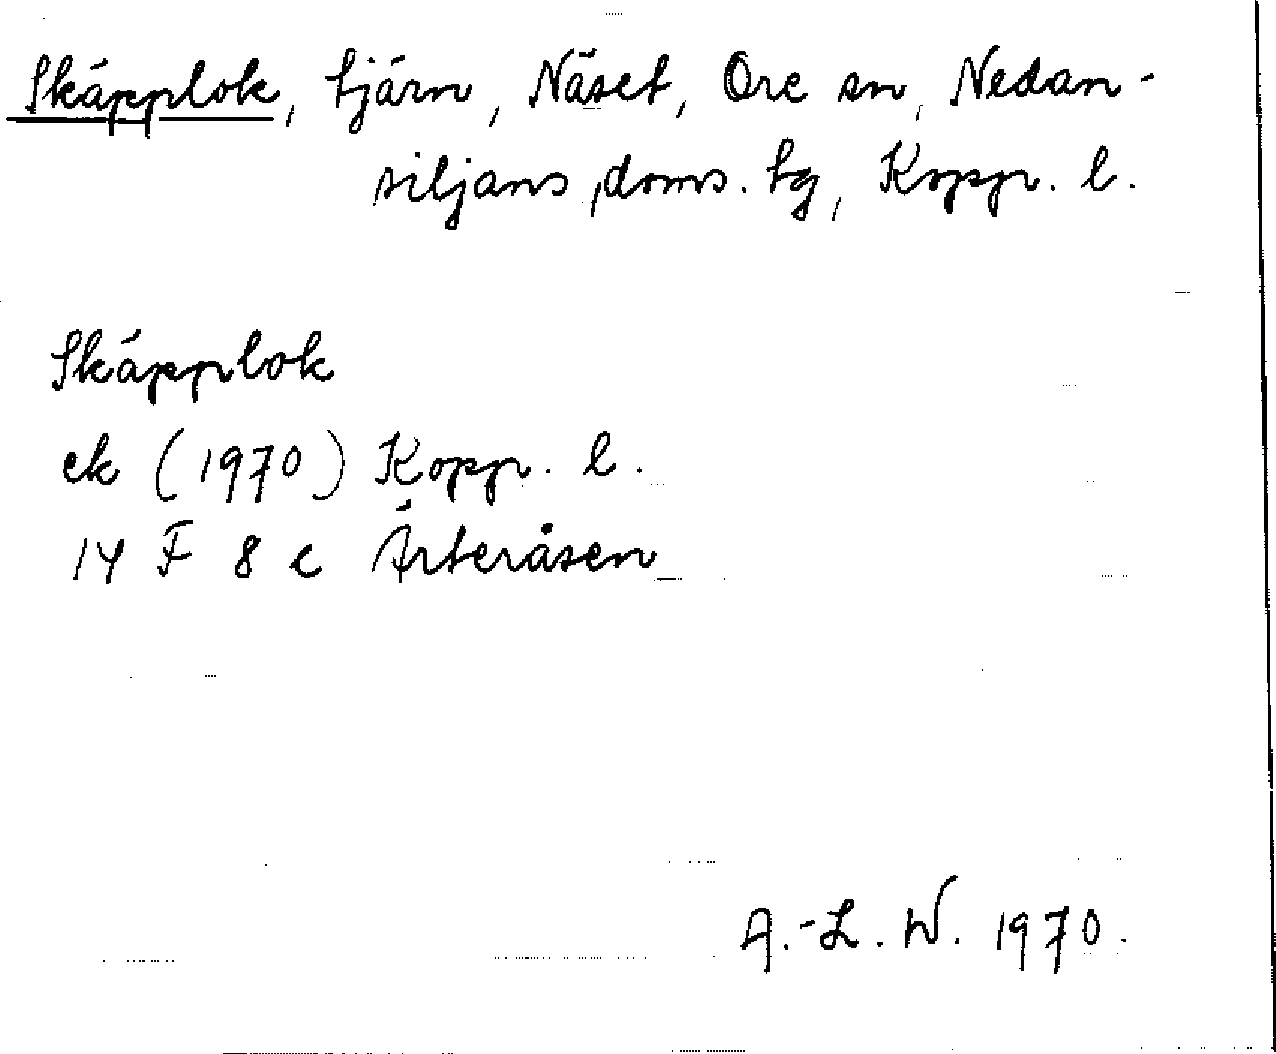 Skäpplok, tjärn, Näset, Ore sn, Nedan-
siljans doms. tg, Kopp. l.
Skäpplok
ek (1970) Kopp. l.
14 F 8 c Ärteråsen
A.-L. W. 1970.